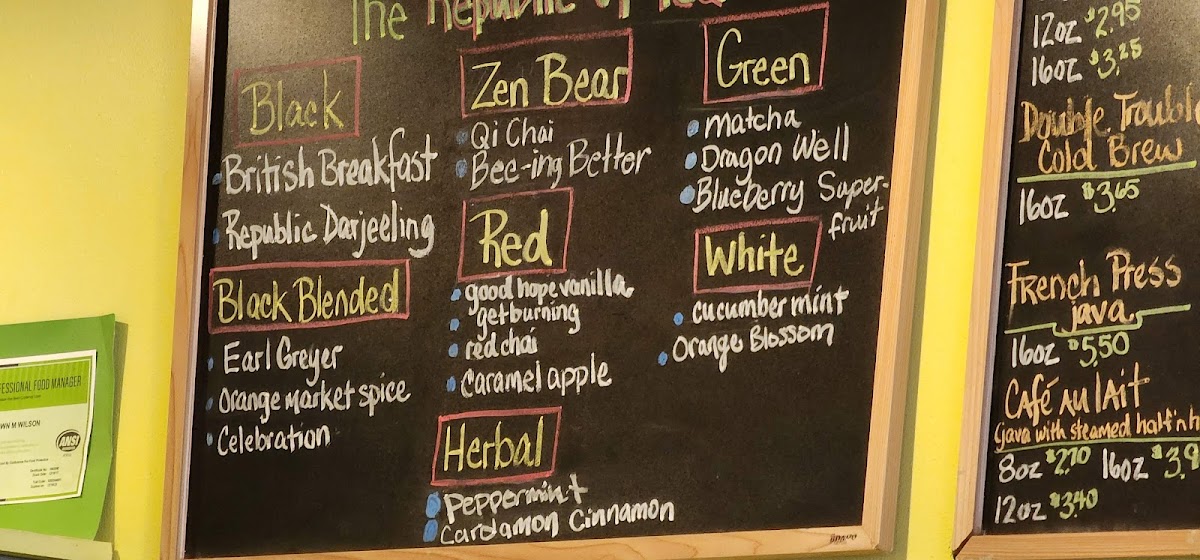 The Republic of Tea
Black
British Breakfast
Republic Darjeeling
Black Blended
Earl Greyer
Orange market spice
Celebration
Zen Bear
Qi Chai
Bee-ing Better
Red
good hope vanilla
get burning
red chai
Caramel apple
Herbal
Peppermint
Cardamon Cinnamon
Green
matcha
Dragon Well
Blueberry Super-
fruit
White
cucumber mint
Orange Blossom
12oz $2.95
16oz $3.25
Double Troubl
Cold Brew
16oz $3.65
French Press
java
16oz $5.50
Café Au lAit
java with steamed half n h
8oz $2.70 16oz $3.9
12oz $3.40
FESSIONAL FOOD MANAGER
WN M WILSON
ANSI